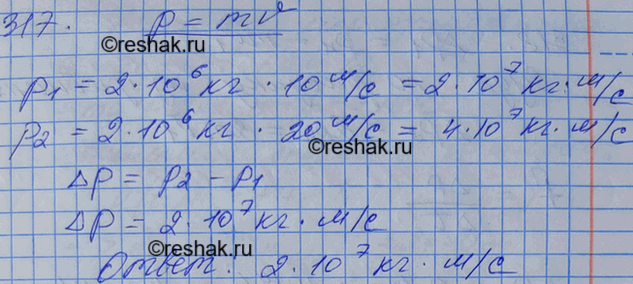 317. p = mv
©reshak.ru
p₁ = 2·10⁶ кг · 10 м/с = 2·10⁷ кг·м/с
p₂ = 2·10⁶ кг · 20 м/с = 4·10⁷ кг·м/с
©reshak.ru
Δp = p₂ − p₁
Δp = 2·10⁷ кг·м/с
©reshak.ru
Ответ: 2·10⁷ кг·м/с